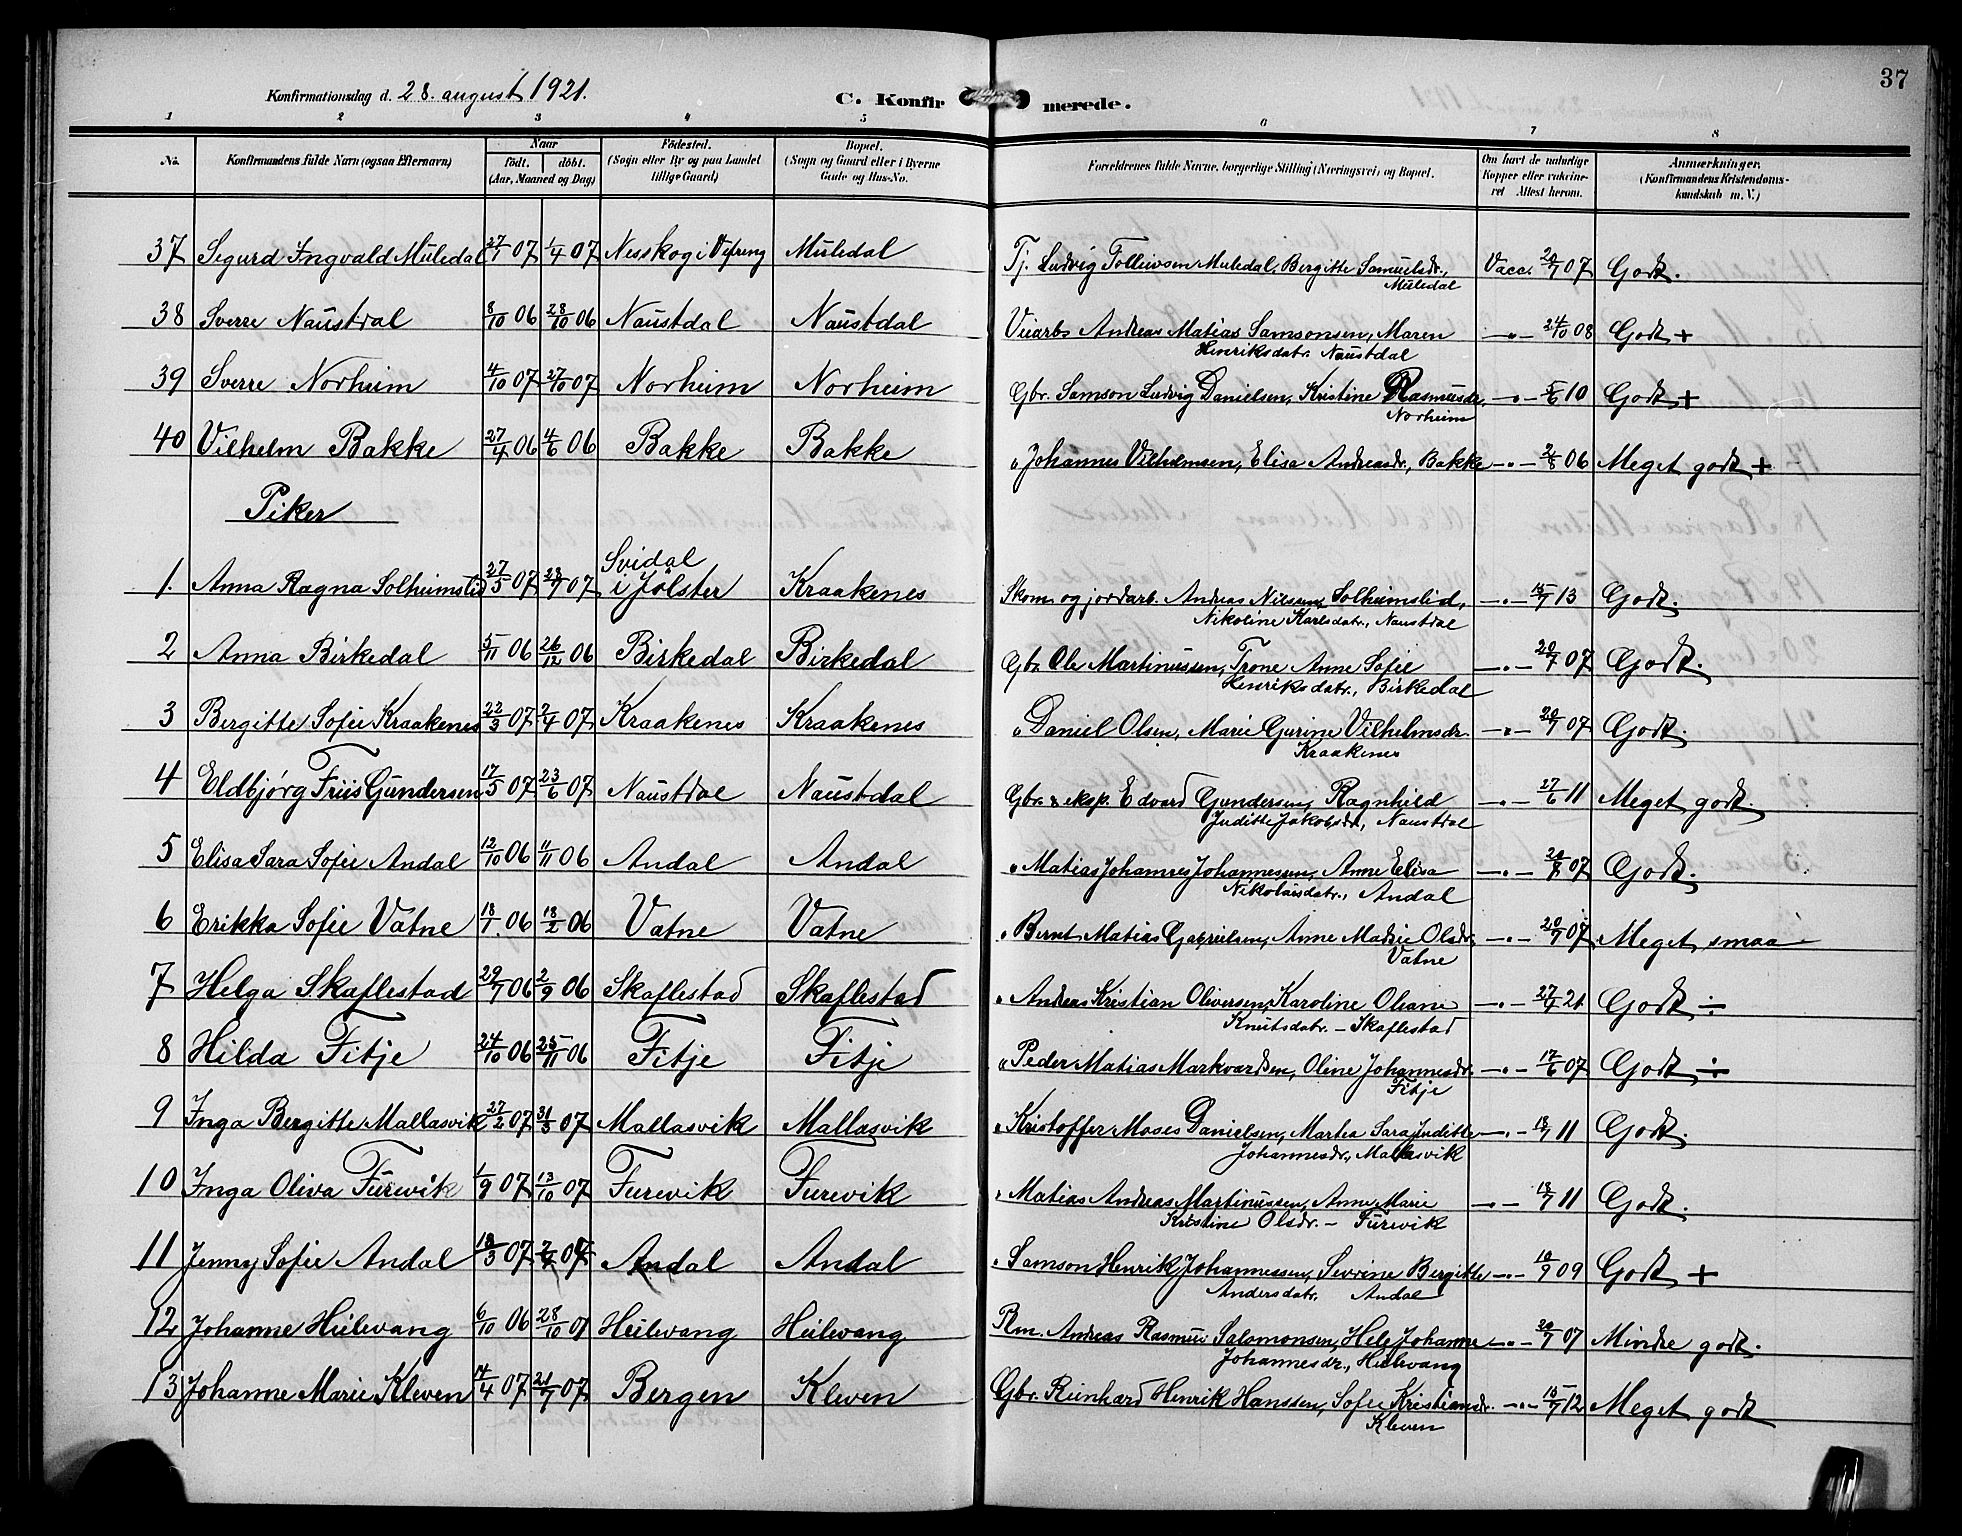 37
Konfirmationsdag d. 28. august 1921.
C. Konfirmerede.
1 2 3 4 5 6 7 8
No.
Konfirmandens fulde Navn (ogsaa Efternavn)
Naar
födt. döbt.
(Aar, Maaned og Dag)
Födested.
(Sogn eller By og paa Landet
tillige Gaard)
Bopæl.
(Sogn og Gaard eller i Byerne
Gade og Hus-No.
Forældrenes fulde Navne, borgerlige Stilling (Næringsvei) og Bopæl.
Om havt de naturlige
Kopper eller vakcine-
ret Attest herom.
Anmærkninger.
(Konfirmandens Kristendoms-
kundskab m. V.)
37 Sigurd Ingvald Muledal 27/1 07 1/4 07 Nesskog i Vefring Muledal Tj. Ludvig Tolleivsen Muledal, Bergitte Samuelsdr., Vacc. 20/7 07 Godt.
Muledal
38 Sverre Naustdal 8/10 06 28/10 06 Naustdal Naustdal Veiarb. Andreas Matias Samsonsen, Maren -"- 24/10 08 Godt +
Henriksdatr. Naustdal
39 Sverre Norheim 4/10 07 27/10 07 Norheim Norheim Gbr. Samson Ludvig Danielsen, Kristine Rasmusdr. -"- 5/6 10 Godt +
Norheim
40 Vilhelm Bakke 27/4 06 4/6 06 Bakke Bakke " Johannes Vilhelmsen, Elisa Andreasdr., Bakke -"- 2/8 06 Meget godt +
Piker
Svidal
1. Anna Ragna Solheimslid 27/5 07 28/7 07 i Jølster Kraakenes Skom. og jordarb. Andreas Nilsen, Solheimslid, -"- 15/7 13 Godt.
Nikoline Karlsdatr., Naustdal
2 Anna Birkedal 5/11 06 26/12 06 Birkedal Birkedal Gbr. Ole Martinussen, Trone Anne Sofie -"- 20/7 07 Godt.
Henriksdatr., Birkedal
3 Bergitte Sofie Kraakenes 22/3 07 2/4 07 Kraakenes Kraakenes " Daniel Olsen, Marie Gurine Vilhelmsdr. -"- 20/7 07 Godt.
Kraakenes
4 Eldbjørg Friis Gundersen 17/5 07 23/6 07 Naustdal Naustdal Gbr. & eksp. Edvard Gundersen, Ragnhild -"- 27/6 11 Meget godt.
Juditte Jakobsdr., Naustdal
5 Elisa Sara Sofie Andal 12/10 06 11/11 06 Andal Andal " Matias Johannes Johannessen, Anne Elisa -"- 07 Godt.
Nikolaisdatr., Andal
6 Erikka Sofie Vatne 18/1 06 18/2 06 Vatne Vatne " Bernt Matias Gabrielsen, Anne Madsie Olsdr. -"- 20/7 07 Meget smaa
Vatne
7 Helga Skaflestad 29/7 06 2/9 06 Skaflestad Skaflestad " Andreas Kristian Oliversen, Karoline Oliane -"- 27/7 21. Godt ÷
Knutsdatr. - Skaflestad
8 Hilda Fitje 24/10 06 25/11 06 Fitje Fitje " Peder Matias Markvardsen, Oline Johannesdr. -"- 17/6 07 Godt ÷
Fitje
9 Inga Bergitte Mallasvik 27/2 07 31/3 07 Mallasvik Mallasvik " Kristoffer Moses Danielsen, Martea Sara Juditte -"- 18/7 11 Godt.
Johannesdr., Mallasvik
10 Inga Oliva Furevik 1/9 07 13/10 07 Furevik Furevik " Matias Andreas Martinussen, Anne Marie -"- 18/7 11 Godt.
Kristine Olsdr. - Furevik
11 Jenny Sofie Andal 18/3 07 7/4 07 Andal Andal " Samson Henrik Johannessen, Sevrine Bergitte -"- 10/9 09 Godt +
Andersdatr. Andal
12 Johanne Heilevang 6/10 06 28/10 Heilevang Heilevang Rm. Andreas Rasmus Salomonsen, Johanne -"- 20/7 07 Mindre godt.
Johannesdr., Heilevang
13 Johanne Marie Kleven 14/4 07 21/7 07 Bergen Kleven Gbr. Reinhard Henrik Hanssen, Sofie Kristiansdr. -"- 15/7 12 Meget godt
Kleven